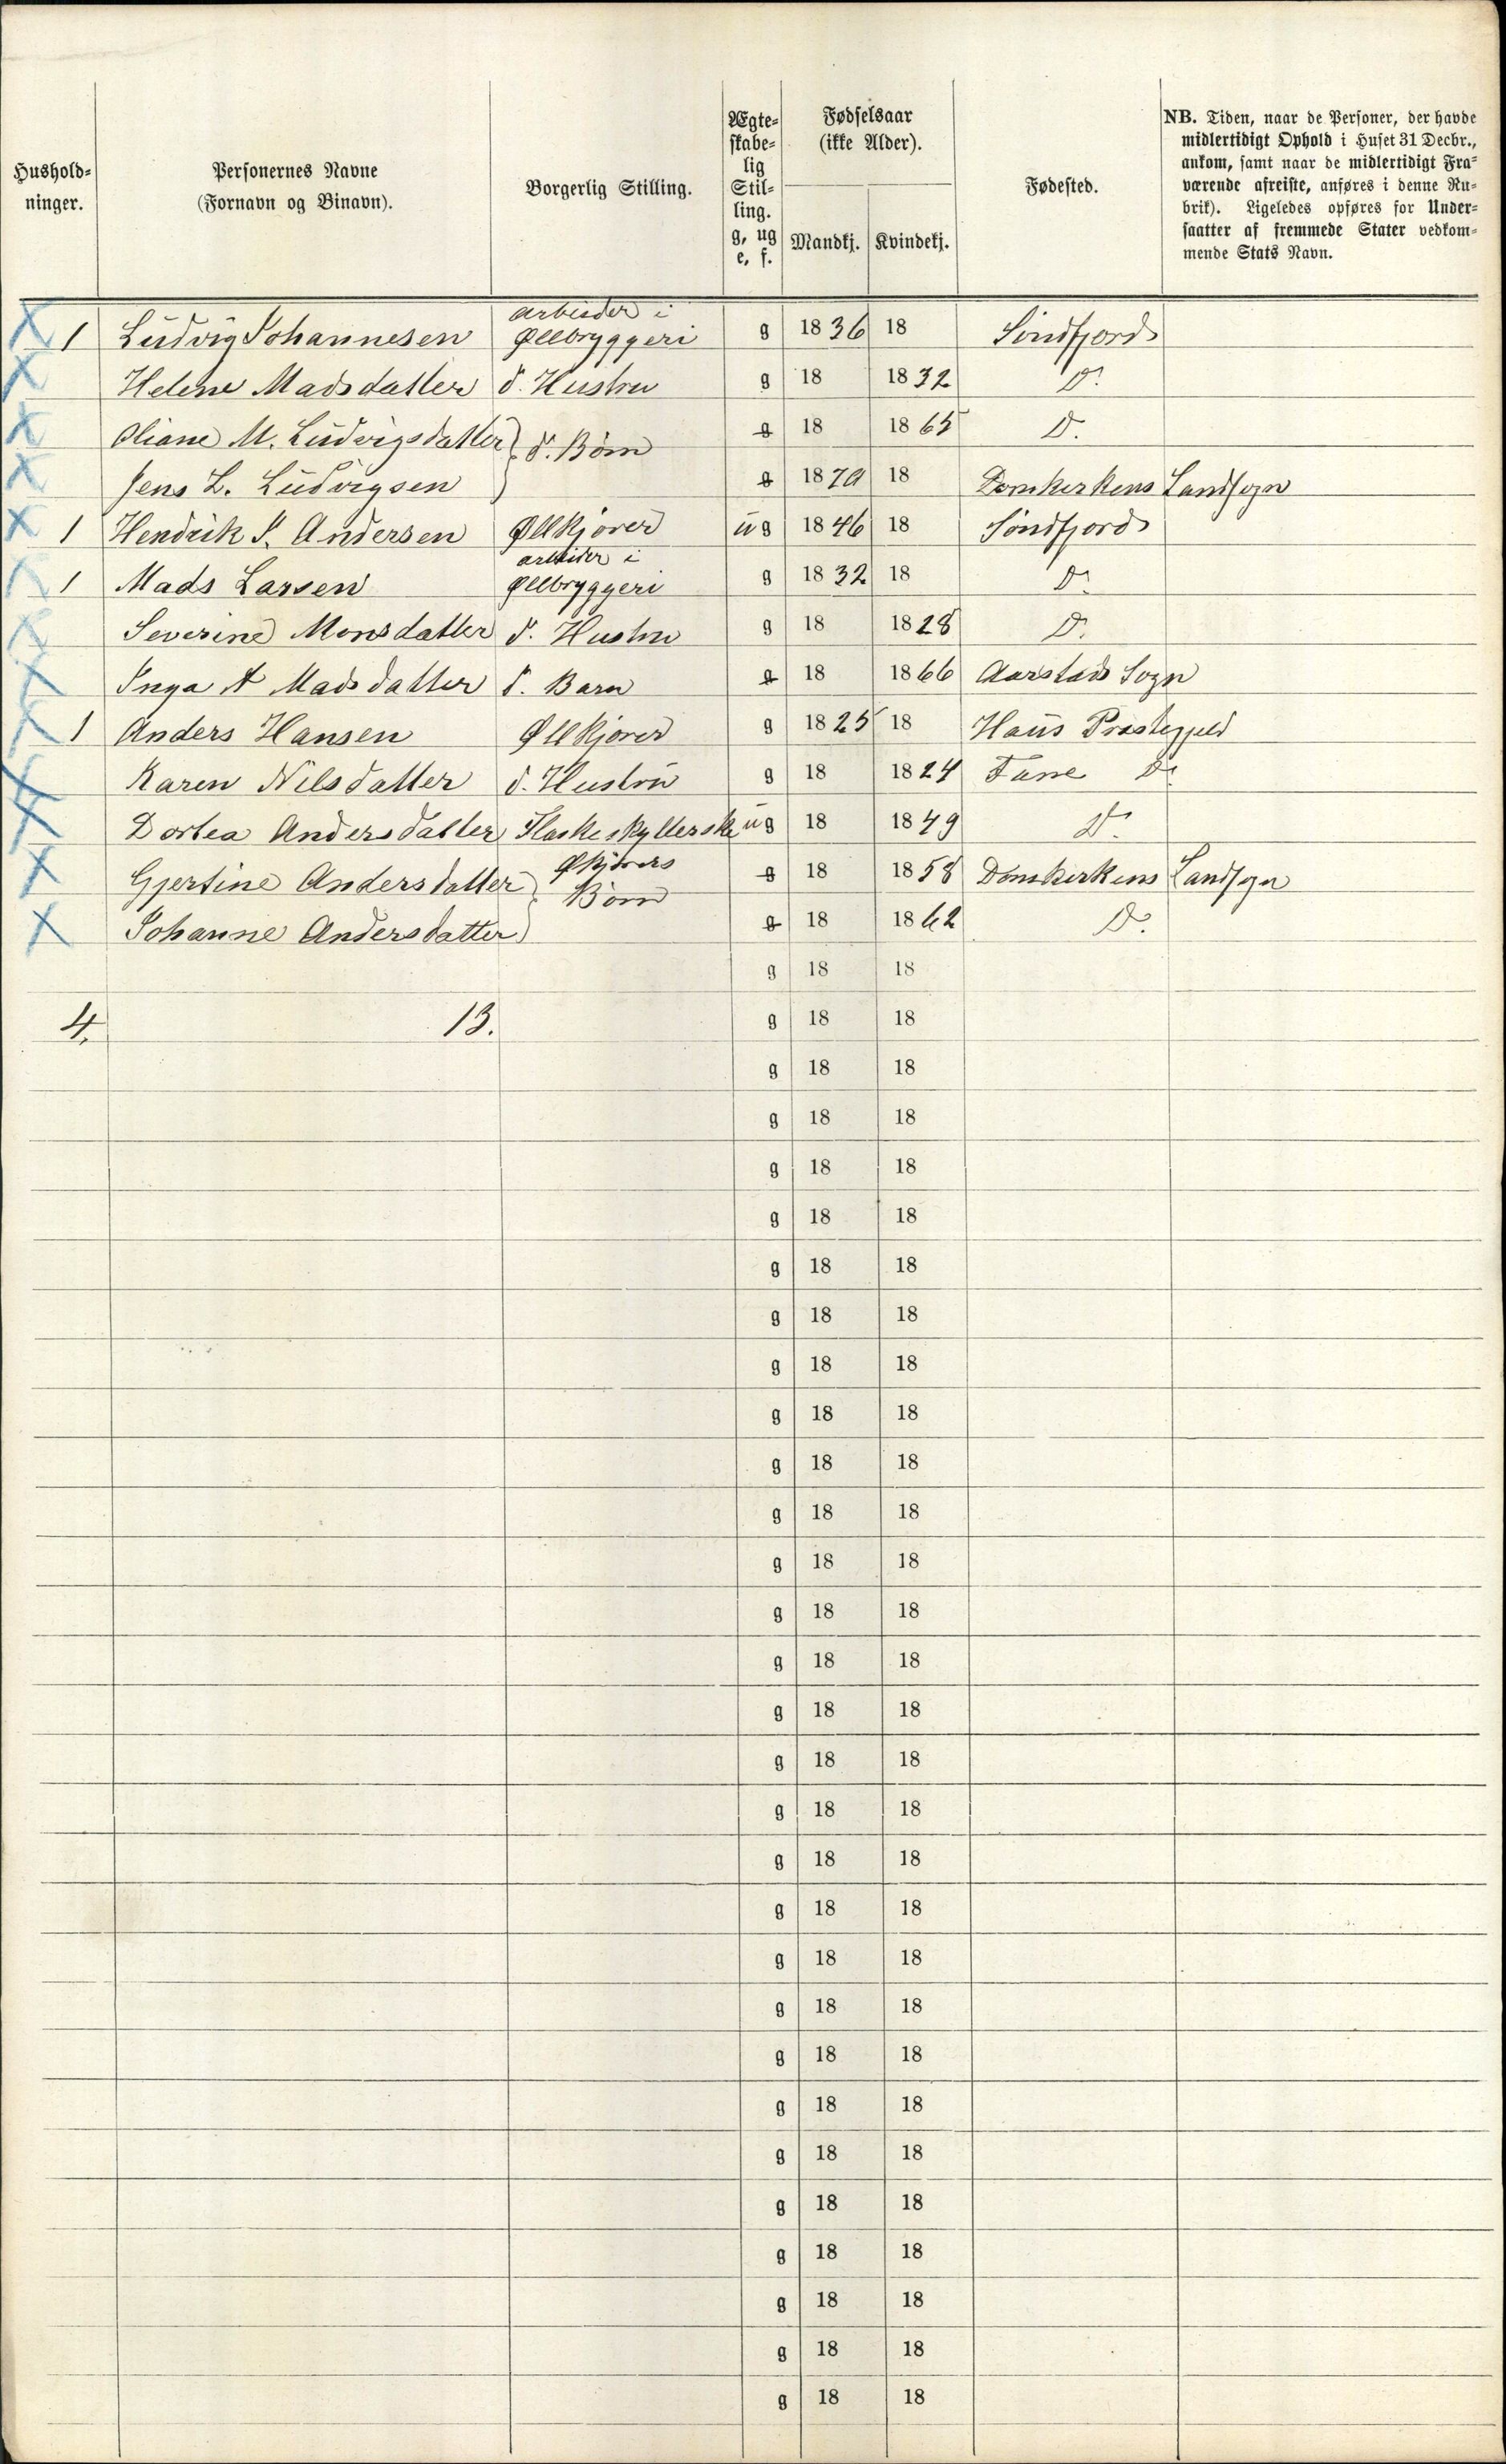 Hushold-
ninger.
Personernes Navne
(Fornavn og Binavn).
Borgerlig Stilling.
Ægte-
skabe-
lig
Stil-
ling.
g, ug
e, f.
Fødselsaar
(ikke Alder).
Mandkj. Kvindekj.
Fødested.
NB. Tiden, naar de Personer, der havde
midlertidigt Ophold i Huset 31 Decbr.,
ankom, samt naar de midlertidigt Fra-
værende afreiste, anføres i denne Ru-
brik). Ligeledes opføres for Under-
saatter af fremmede Stater vedkom-
mende Stats Navn.
arbeider i
1 Ludvig Johannesen Øllbryggeri g 1836 18 Söndfjord
Helene Madsdatter d. Hustru g 18 1832 D.
Oliane M. Ludvigsdatter } d. Børn g 18 1865 D.
Jens L. Ludvigsen g 1870 18 Domkirkens Landsogn
1 Hendrik J. Andersen Øllkjører ug 1846 18 Söndfjord
arbeider i
1 Mads Larsen Øllbryggeri g 1832 18 D.
Severine Monsdatter d. Hustru g 18 1828 D.
Inga A Madsdatter d. Barn g 18 1866 Aarstads Sogn
1 Anders Hansen Øllkjører g 1825 18 Haus Præstegjeld
Karen Nilsdatter d. Hustru g 18 1824 Fane D.
Dortea Andersdatter Flaskeskyllerske ug 18 1849 D.
Økjørers
Gjertine Andersdatter } Børn g 18 1858 Domkirkens Landsogn
Johanne Andersdatter g 18 1862 D.
g 18 18
4. 13. g 18 18
g 18 18
g 18 18
g 18 18
g 18 18
g 18 18
g 18 18
g 18 18
g 18 18
g 18 18
g 18 18
g 18 18
g 18 18
g 18 18
g 18 18
g 18 18
g 18 18
g 18 18
g 18 18
g 18 18
g 18 18
g 18 18
g 18 18
g 18 18
g 18 18
g 18 18
g 18 18
g 18 18
g 18 18